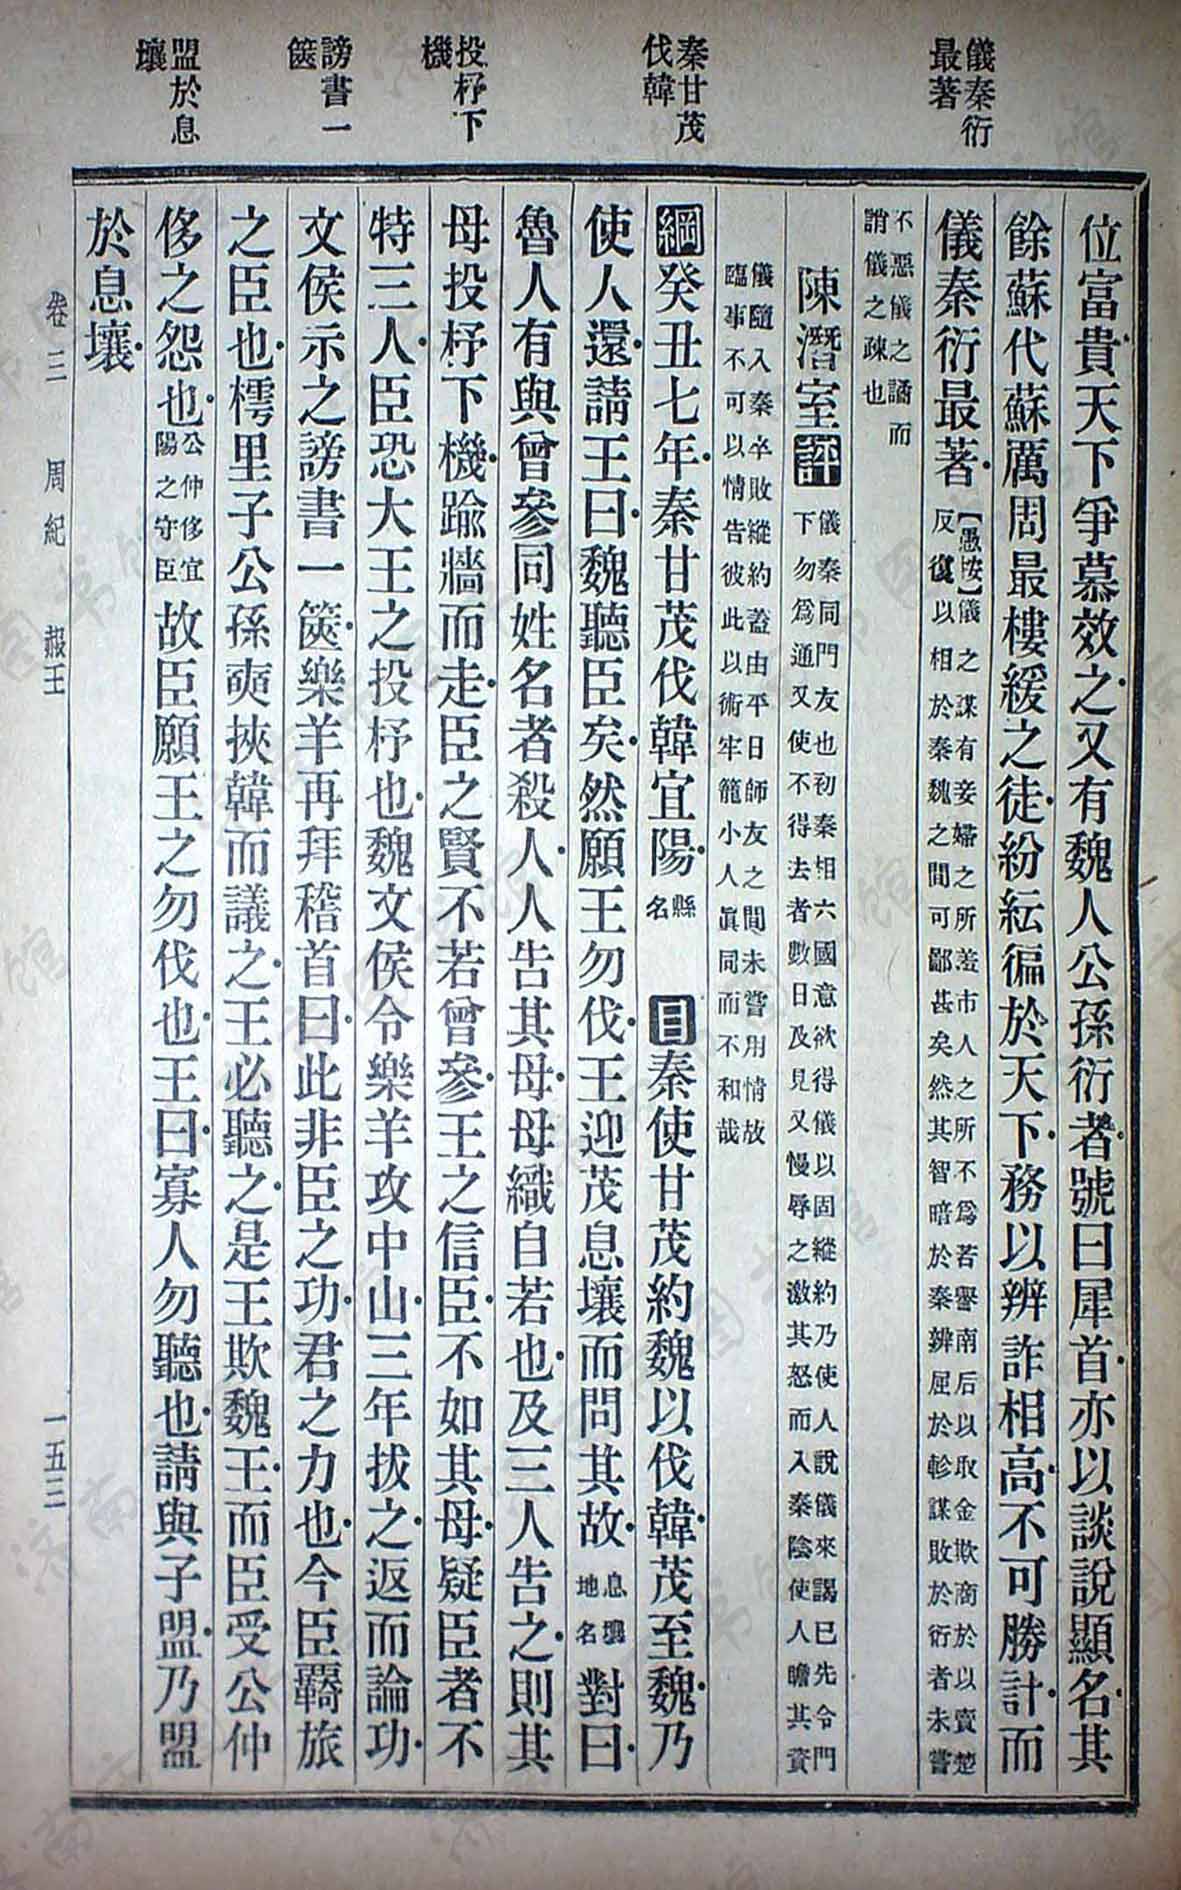 儀秦衍
最著
秦甘茂
伐韓
投杼下
機
謗書一
篋
盟於息
壤
位富貴天下爭慕效之又有魏人公孫衍者號曰犀首亦以談說顯名其
餘蘇代蘇厲周最樓緩之徒紛紜徧於天下務以辨詐相高不可勝計而
儀秦衍最著【愚按】儀之謀有妾婦之所羞市人之所不為若譽南后以取金欺商於以賣楚
反復以相於秦魏之間可鄙甚矣然其智暗於秦辨屈於軫謀敗於衍者未嘗
不惡儀之譎而
謂儀之疎也
陳潛室評儀秦同門友也初秦相六國意欲得儀以固縱約乃使人說儀來謁已先令門
下勿為通又使不得去者數日及見又慢辱之激其怒而入秦陰使人瞻其資
儀隨入秦卒敗縱約蓋由平日師友之間未嘗用情故
臨事不可以情告彼此以術牢籠小人眞同而不和哉
綱癸丑七年秦甘茂伐韓宜陽縣名 目秦使甘茂約魏以伐韓茂至魏乃
使人還請王曰魏聽臣矣然願王勿伐王迎茂息壤而問其故息壤地名對曰
魯人有與曾參同姓名者殺人人告其母母織自若也及三人告之則其
母投杼下機踰牆而走臣之賢不若曾參王之信臣不如其母疑臣者不
特三人臣恐大王之投杼也魏文侯令樂羊攻中山三年拔之返而論功
文侯示之謗書一篋樂羊再拜稽首曰此非臣之功君之力也今臣羇旅
之臣也樗里子公孫奭挾韓而議之王必聽之是王欺魏王而臣受公仲
侈之怨也公仲侈宜陽之守臣故臣願王之勿伐也王曰寡人勿聽也請與子盟乃盟
於息壤
卷三 周紀 赧王 一五三